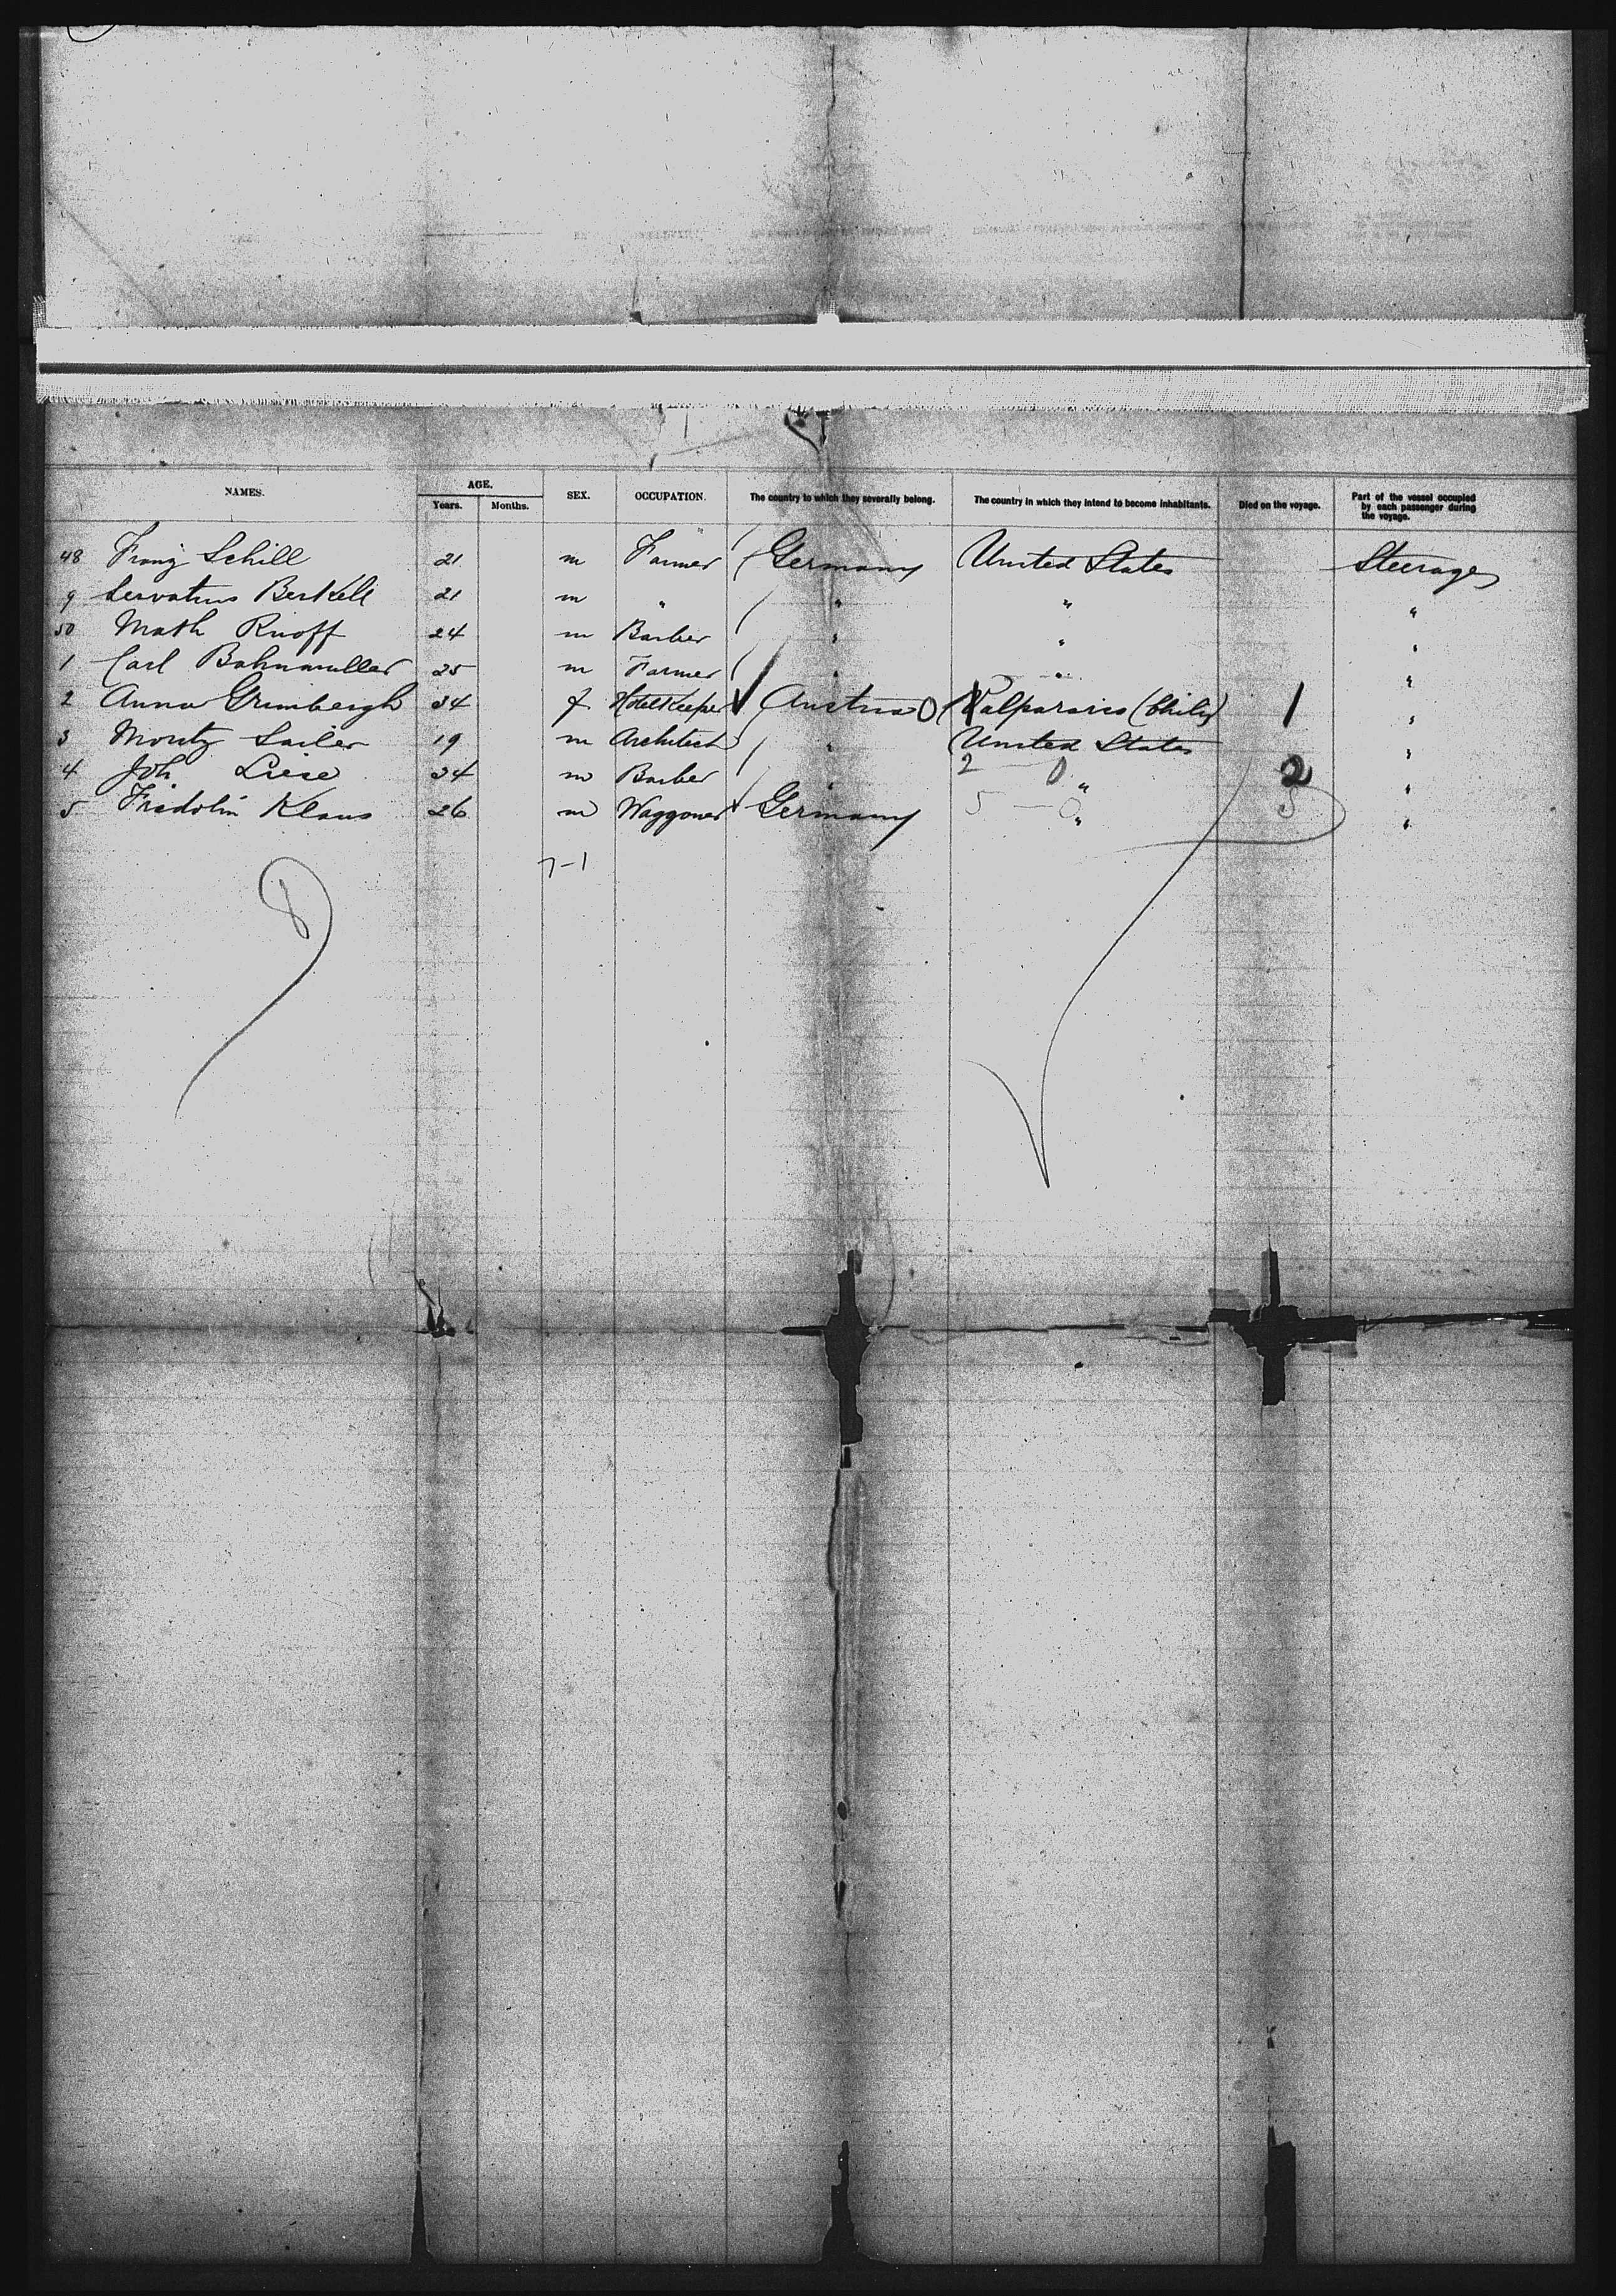 NAMES. AGE. Years. Months. SEX. OCCUPATION. The country to which they severally belong. The country in which they intend to become inhabitants. Died on the voyage. Part of the vessel occupied by each passenger during the voyage.
48 Franz Schill 21 m Farmer Germany United States Steerage
9 Servatius Berkell 21 m " " " "
50 Math Ruoff 24 m Barber " " "
1 Carl Bahnmuller 25 m Farmer " " "
2 Anna Grimbergh 34 f Hotelkeeper Austria 0 Valparaiso (Chili) 1 "
3 Moritz Sailer 19 m Architect " United States "
4 Joh Liese 34 m Barber 2 — 0 " 2 "
5 Fridolin Klaus 26 m Waggoner Germany 5 — 0 " 5 "
7-1
8